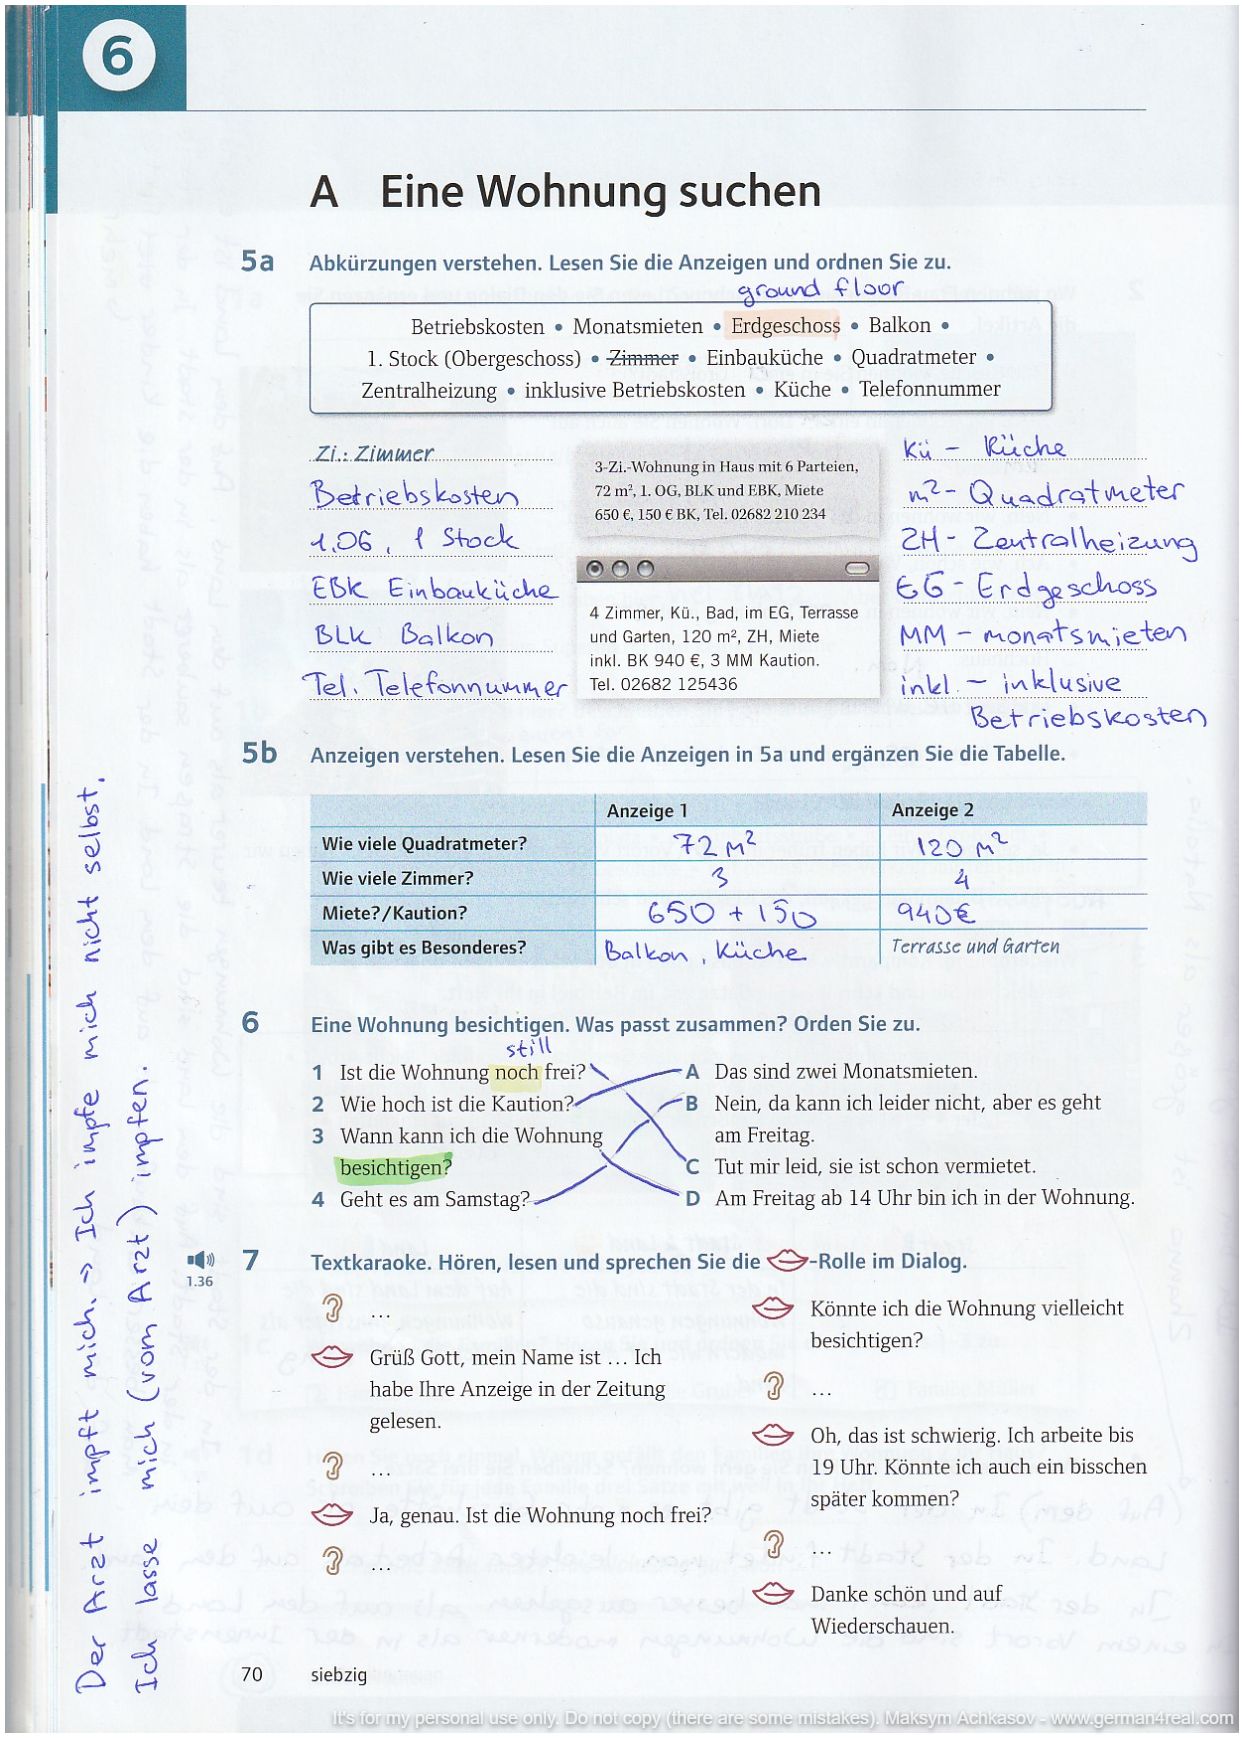 6
A Eine Wohnung suchen
5a Abkürzungen verstehen. Lesen Sie die Anzeigen und ordnen Sie zu.
ground floor
Betriebskosten • Monatsmieten • Erdgeschoss • Balkon •
1. Stock (Obergeschoss) • Zimmer • Einbauküche • Quadratmeter •
Zentralheizung • inklusive Betriebskosten • Küche • Telefonnummer
Zi.: Zimmer
Betriebskosten
1.OG, 1 Stock
EBK Einbauküche
BLK Balkon
Tel. Telefonnummer
3-Zi.-Wohnung in Haus mit 6 Parteien,
72 m², 1. OG, BLK und EBK, Miete
650 €, 150 € BK, Tel. 02682 210 234
4 Zimmer, Kü., Bad, im EG, Terrasse
und Garten, 120 m², ZH, Miete
inkl. BK 940 €, 3 MM Kaution.
Tel. 02682 125436
Kü – Küche
m² – Quadratmeter
ZH – Zentralheizung
EG – Erdgeschoss
MM – monatsmieten
inkl. – inklusive
Betriebskosten
5b Anzeigen verstehen. Lesen Sie die Anzeigen in 5a und ergänzen Sie die Tabelle.
Anzeige 1 Anzeige 2
Wie viele Quadratmeter? 72 m² 120 m²
Wie viele Zimmer? 3 4
Miete?/Kaution? 650 + 150 940€
Was gibt es Besonderes? Balkon, Küche Terrasse und Garten
6 Eine Wohnung besichtigen. Was passt zusammen? Orden Sie zu.
still
1 Ist die Wohnung noch frei?
2 Wie hoch ist die Kaution?
3 Wann kann ich die Wohnung
besichtigen?
4 Geht es am Samstag?
A Das sind zwei Monatsmieten.
B Nein, da kann ich leider nicht, aber es geht
am Freitag.
C Tut mir leid, sie ist schon vermietet.
D Am Freitag ab 14 Uhr bin ich in der Wohnung.
1.36
7 Textkaraoke. Hören, lesen und sprechen Sie die -Rolle im Dialog.
...
Grüß Gott, mein Name ist ... Ich
habe Ihre Anzeige in der Zeitung
gelesen.
...
Ja, genau. Ist die Wohnung noch frei?
...
Könnte ich die Wohnung vielleicht
besichtigen?
...
Oh, das ist schwierig. Ich arbeite bis
19 Uhr. Könnte ich auch ein bisschen
später kommen?
...
Danke schön und auf
Wiederschauen.
Der Arzt impft mich. => Ich impfe mich nicht selbst.
Ich lasse mich (vom Arzt) impfen.
70 siebzig
It's for my personal use only. Do not copy (there are some mistakes). Maksym Achkasov - www.german4real.com